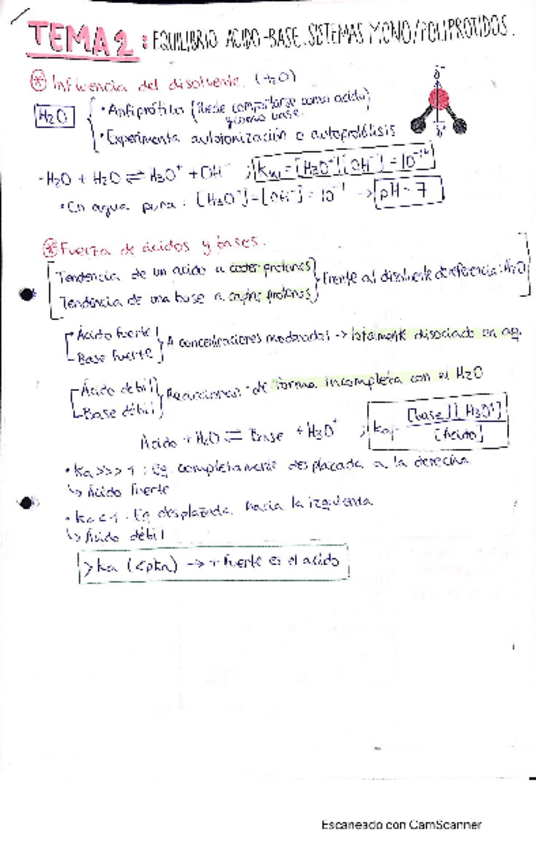 TEMA 2: EQUILIBRIO ÁCIDO-BASE. SISTEMAS MONO/POLIPRÓTIDOS.
* Influencia del disolvente. (H2O)
H2O { · Anfiprótico (Puede comportarse como ácido y como base.
· Experimenta autoionización o autoprotólisis
δ-
δ+
· H2O + H2O ⇌ H3O+ + OH- ; Kw = [H3O+][OH-] = 10^-14
· En agua pura: [H3O+] = [OH-] = 10 → pH = 7
* Fuerza de ácidos y bases.
Tendencia de un ácido a ceder protones
Tendencia de una base a captar protones } Frente al disolvente de referencia: H2O
Ácido fuerte
Base fuerte } A concentraciones moderadas → totalmente disociado en aq.
Ácido débil
Base débil } Reaccionan de forma incompleta con el H2O
Ácido + H2O ⇌ Base + H3O+ ; Ka = [base][H3O+] / [Ácido]
· Ka >>> 1 : Eq. completamente desplazada a la derecha
↳ Ácido fuerte
· Ka < 1 : Eq desplazada hacia la izquierda
↳ Ácido débil
> Ka (< pKa) → + fuerte es el ácido
Escaneado con CamScanner